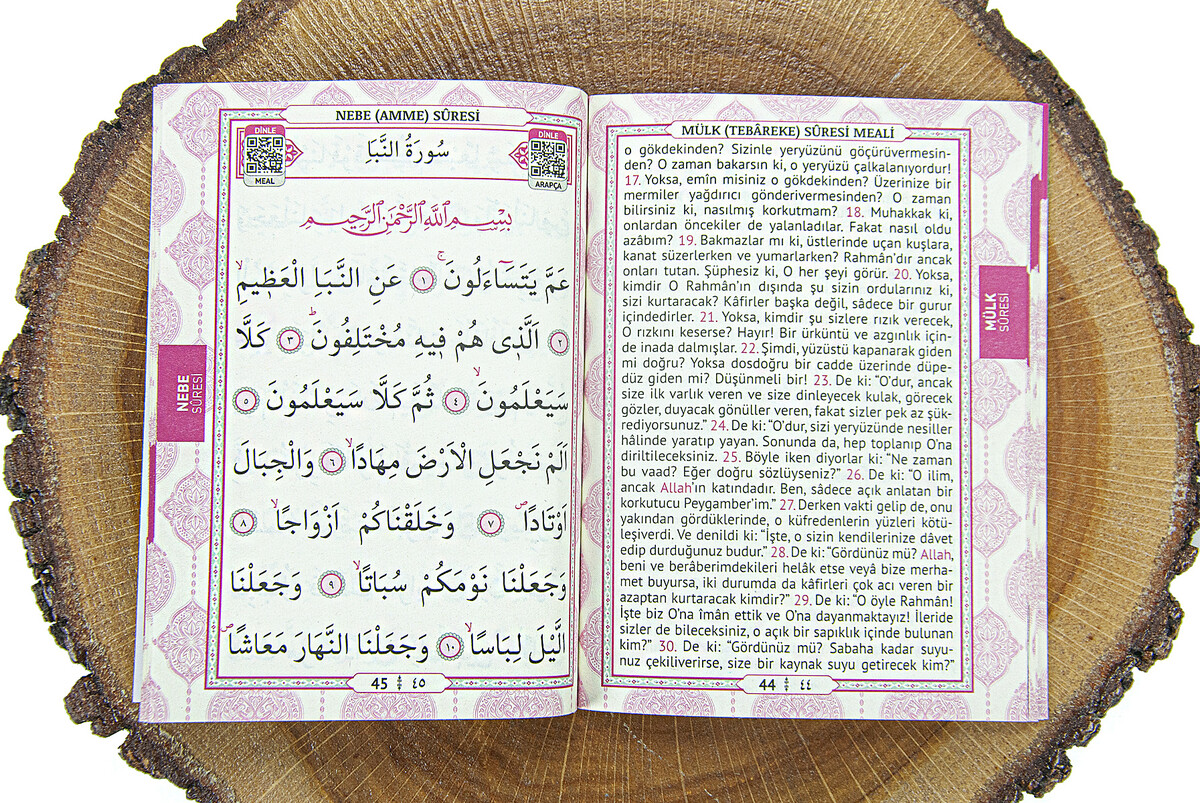 MÜLK (TEBÂREKE) SÛRESİ MEALİ
o gökdekinden? Sizinle yeryüzünü göçürüvermesin-
den? O zaman bakarsın ki, o yeryüzü çalkalanıyordur!
17. Yoksa, emîn misiniz o gökdekinden? Üzerinize bir
mermiler yağdırıcı gönderivermesinden? O zaman
bilirsiniz ki, nasılmış korkutmam? 18. Muhakkak ki,
onlardan öncekiler de yalanladılar. Fakat nasıl oldu
azâbım? 19. Bakmazlar mı ki, üstlerinde uçan kuşlara,
kanat süzerlerken ve yumarlarken? Rahmân'dır ancak
onları tutan. Şüphesiz ki, O her şeyi görür. 20. Yoksa,
kimdir O Rahmân'ın dışında şu sizin ordularınız ki,
sizi kurtaracak? Kâfirler başka değil, sâdece bir gurur
içindedirler. 21. Yoksa, kimdir şu sizlere rızık verecek,
O rızkını keserse? Hayır! Bir ürküntü ve azgınlık için-
de inada dalmışlar. 22. Şimdi, yüzüstü kapanarak giden
mi doğru? Yoksa dosdoğru bir cadde üzerinde düpe-
düz giden mi? Düşünmeli bir! 23. De ki: “O'dur, ancak
size ilk varlık veren ve size dinleyecek kulak, görecek
gözler, duyacak gönüller veren, fakat sizler pek az şük-
rediyorsunuz.” 24. De ki: “O'dur, sizi yeryüzünde nesiller
hâlinde yaratıp yayan. Sonunda da, hep toplanıp O'na
diriltileceksiniz. 25. Böyle iken diyorlar ki: “Ne zaman
bu vaad? Eğer doğru sözlüyseniz?” 26. De ki: “O ilim,
ancak Allah'ın katındadır. Ben, sâdece açık anlatan bir
korkutucu Peygamber'im.” 27. Derken vakti gelip de, onu
yakından gördüklerinde, o küfredenlerin yüzleri kötü-
leşiverdi. Ve denildi ki: “İşte, o sizin kendilerinize dâvet
edip durduğunuz budur.” 28. De ki: “Gördünüz mü? Allah,
beni ve berâberimdekileri helâk etse veyâ bize merha-
met buyursa, iki durumda da kâfirleri çok acı veren bir
azaptan kurtaracak kimdir?” 29. De ki: “O öyle Rahmân!
İşte biz O'na îmân ettik ve O'na dayanmaktayız! İleride
sizler de bileceksiniz, o açık bir sapıklık içinde bulunan
kim?” 30. De ki: “Gördünüz mü? Sabaha kadar suyu-
nuz çekiliverirse, size bir kaynak suyu getirecek kim?”
44 ٤٤
MÜLK
SÛRESİ
NEBE (AMME) SÛRESİ
DİNLE
MEAL
سُورَةُ النَّبَاِ
DİNLE
ARAPÇA
بِسْمِ اللّٰهِ الرَّحْمٰنِ الرَّحِيمِ
عَمَّ يَتَسَٓاءَلُونَۚ ١ عَنِ النَّبَاِ الْعَظِيمِۙ
٢ اَلَّذٖى هُمْ فٖيهِ مُخْتَلِفُونَۜ ٣ كَلَّا
سَيَعْلَمُونَۙ ٤ ثُمَّ كَلَّا سَيَعْلَمُونَ ٥
اَلَمْ نَجْعَلِ الْاَرْضَ مِهَادًاۙ ٦ وَالْجِبَالَ
اَوْتَادًاۖ ٧ وَخَلَقْنَاكُمْ اَزْوَاجًاۙ ٨
وَجَعَلْنَا نَوْمَكُمْ سُبَاتًاۙ ٩ وَجَعَلْنَا
الَّيْلَ لِبَاسًاۙ ١٠ وَجَعَلْنَا النَّهَارَ مَعَاشًاۖ
45 ٤٥
NEBE
SÛRESİ